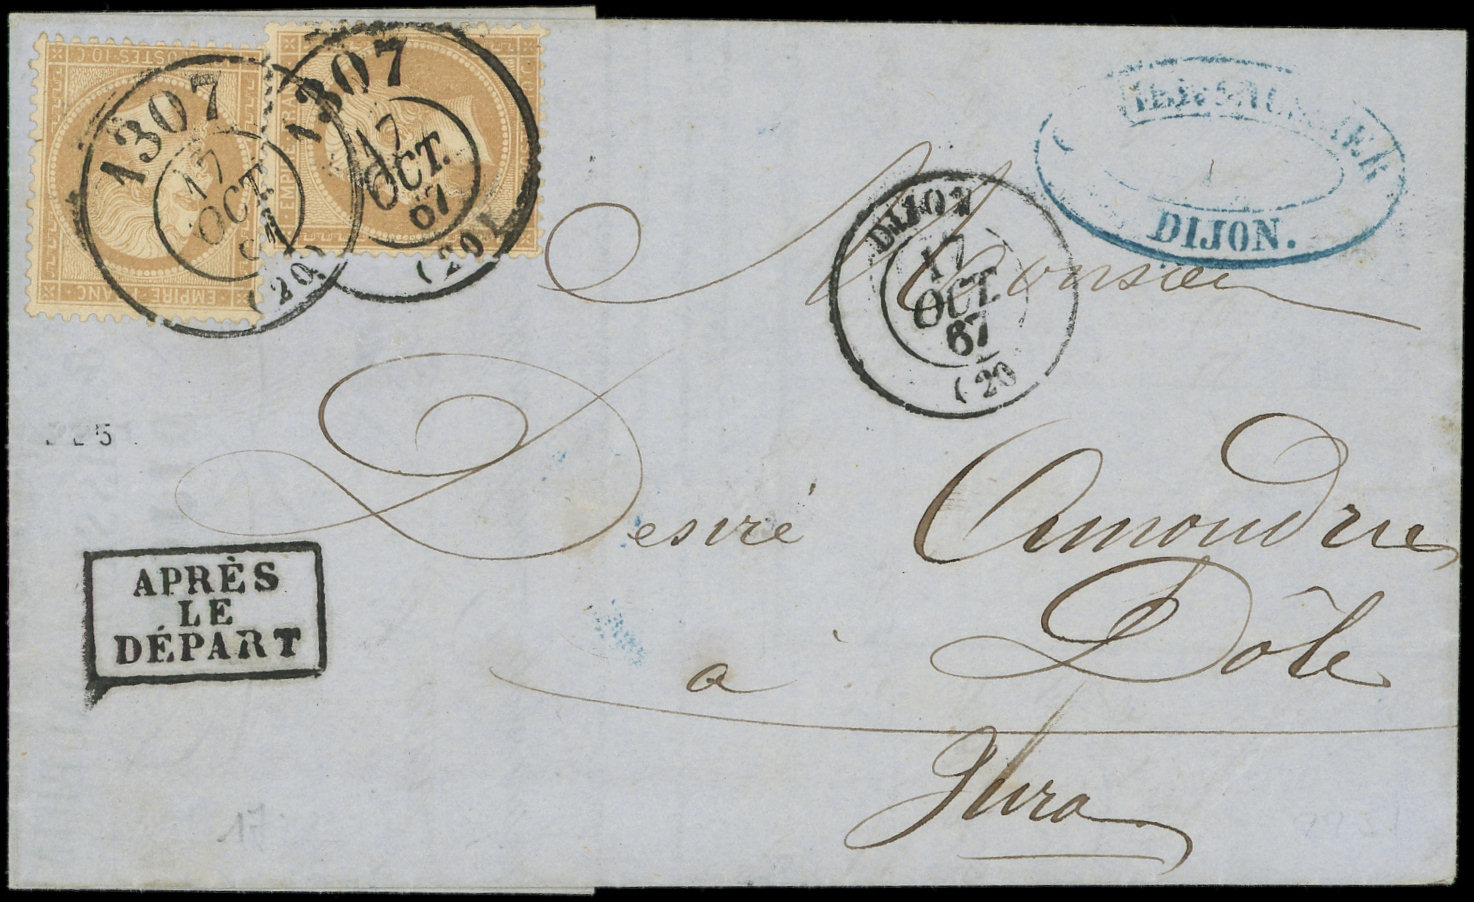 POSTES 10 C
EMPIRE FRANC
1307
17
OCT.
67
(20)
EMPIRE FRA
1307
17
OCT.
67
(20)
DIJON
17
OCT.
67
(20
DIJON.
Monsieur
Desiré Amoudru
5
APRÈS
LE
DÉPART
a Dôle
Jura